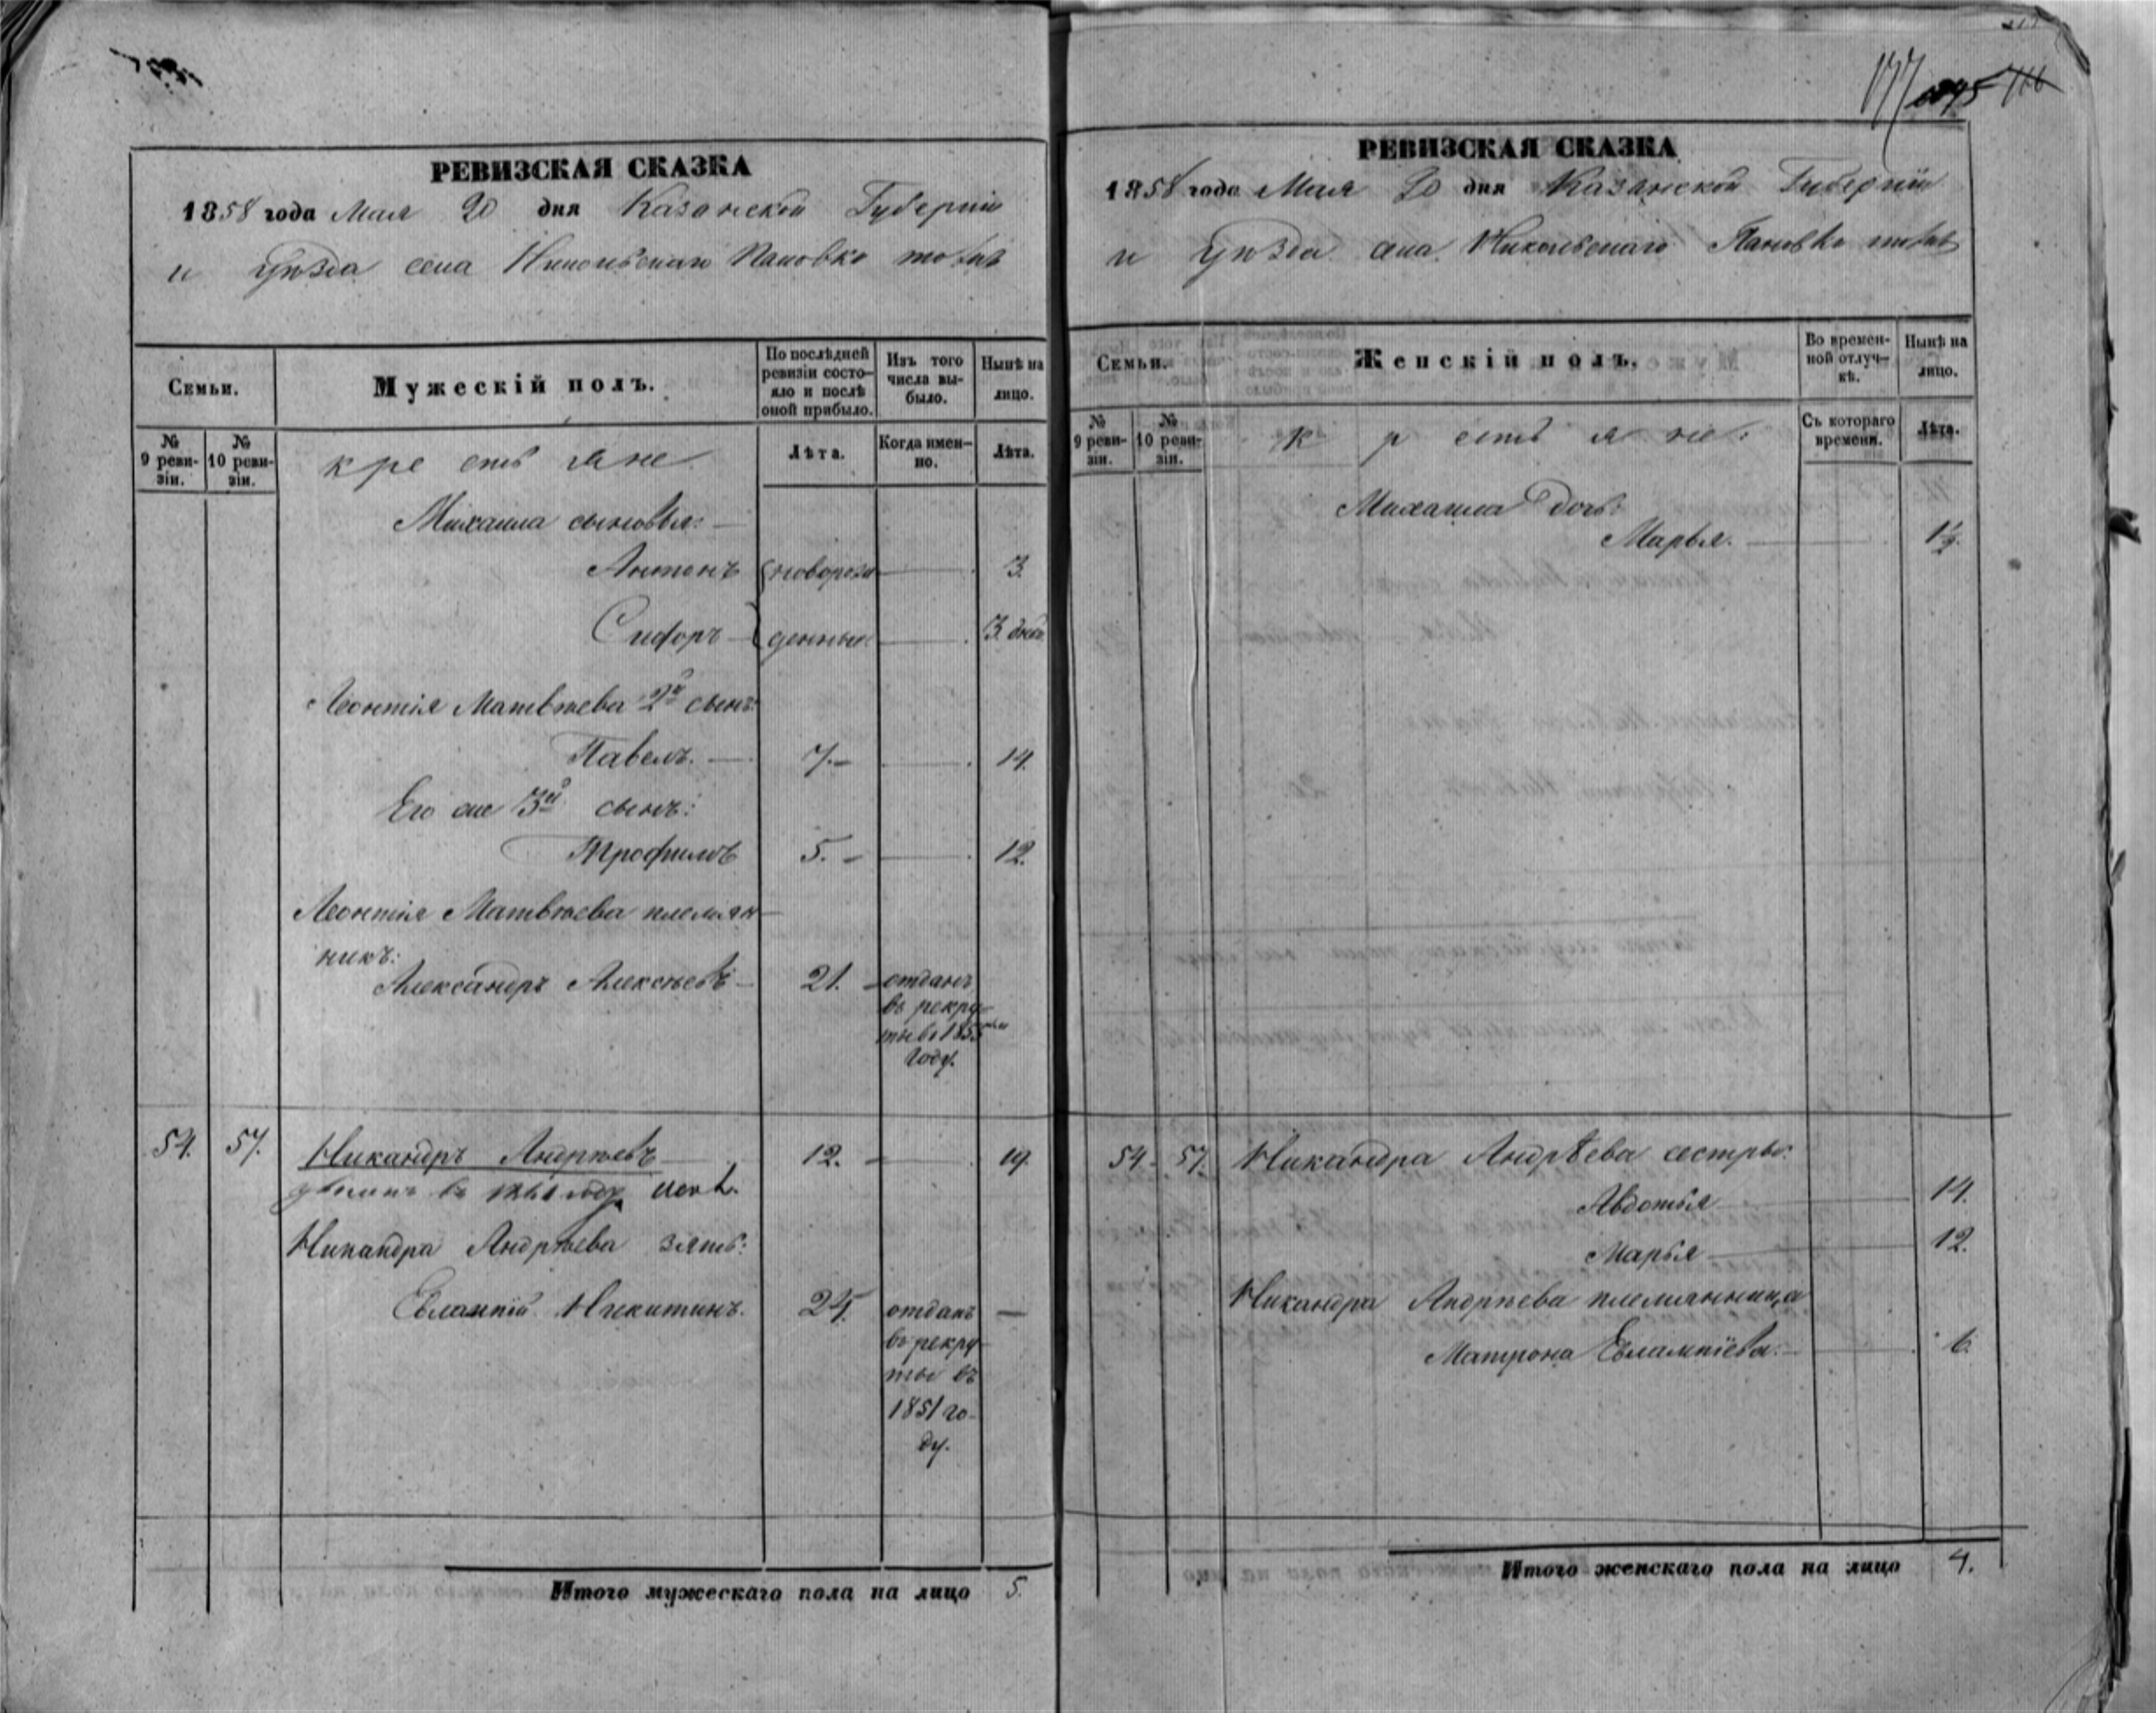 РЕВИЗСКАЯ СКАЗКА
1858 года Мая 20 дня Казанской Губерніи
и уѣзда села Никольскаго Пановко тожъ
Семьи.
Мужескій полъ.
По послѣдней ревизіи состояло и послѣ оной прибыло.
Изъ того числа выбыло.
Нынѣ на лицо.
№ 9 ревизіи.
№ 10 ревизіи.
крестьяне
Лѣта.
Когда именно.
Лѣта.
Михаила сыновья:
Антонъ новорож 3.
Сидоръ денные 3 дней
Леонтія Матвѣева 2й сынъ:
Павелъ. 7. 14.
Его же 3й сынъ:
Трофимъ 5. 12.
Леонтія Матвѣева племян
никъ:
Александръ Алексѣевъ 21. отданъ
въ рекру
ты въ 1855
году.
54. 57. Никандръ Андрѣевъ 12. 19.
Никандра Андрѣева зять:
Евлампій Никитинъ. 24. отданъ
въ рекру
ты въ
1851 го-
ду.
Итого мужескаго пола на лицо 5.
177
РЕВИЗСКАЯ СКАЗКА
1858 года Мая 20 дня Казанской Губерніи
и уѣзда села Никольскаго Пановко тожъ
Семьи.
Женскій полъ.
Во временной отлучкѣ.
Нынѣ на лицо.
№ 9 ревизіи.
№ 10 ревизіи.
крестьяне:
Съ котораго времени.
Лѣта.
Михаила дочь:
Марья.
54. 57. Никандра Андрѣева сестры:
Авдотья 14.
Марья 12.
Никандра Андрѣева племянница
Матрона Евлампіева. 6.
Итого женскаго пола на лицо 4.